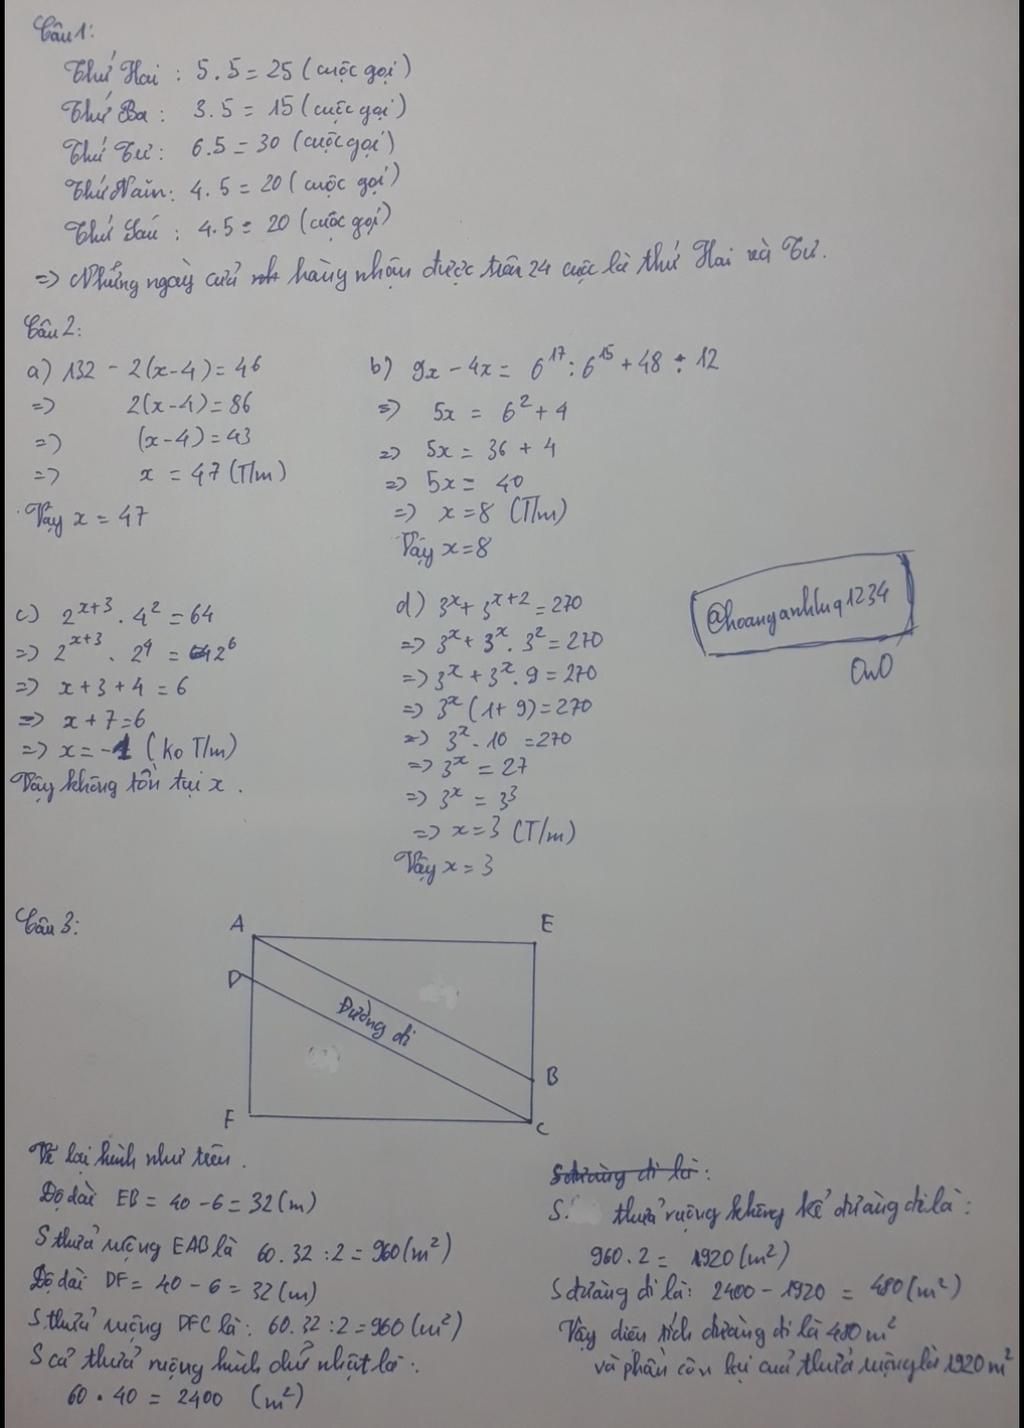 Câu 1:
Thứ Hai : 5.5 = 25 (cuộc gọi)
Thứ Ba : 3.5 = 15 (cuộc gọi)
Thứ Tư : 6.5 = 30 (cuộc gọi)
Thứ Năm : 4.5 = 20 (cuộc gọi)
Thứ Sáu : 4.5 = 20 (cuộc gọi)
=> Những ngày cửa hàng nhận được trên 24 cuộc là thứ Hai và Tư.
Câu 2:
a) 132 - 2(x-4) = 46
=> 2(x-4) = 86
=> (x-4) = 43
=> x = 47 (T/m)
Vậy x = 47
b) 9x - 4x = 6^17 : 6^15 + 48 ÷ 12
=> 5x = 6² + 4
=> 5x = 36 + 4
=> 5x = 40
=> x = 8 (T/m)
Vậy x = 8
c) 2^(x+3) . 4² = 64
=> 2^(x+3) . 2⁴ = 2⁶
=> x + 3 + 4 = 6
=> x + 7 = 6
=> x = -1 (ko T/m)
Vậy không tồn tại x.
d) 3^x + 3^(x+2) = 270
=> 3^x + 3^x . 3² = 270
=> 3^x + 3^x . 9 = 270
=> 3^x (1 + 9) = 270
=> 3^x . 10 = 270
=> 3^x = 27
=> 3^x = 3³
=> x = 3 (T/m)
Vậy x = 3
@hoanganhluq1234
OwO
Câu 3:
A E
D
Đường đi
B
F C
Vẽ lại hình như trên.
Độ dài EB = 40 - 6 = 32 (m)
S thửa ruộng EAB là 60.32 : 2 = 960 (m²)
Độ dài DF = 40 - 6 = 32 (m)
S thửa ruộng DFC là : 60.32 : 2 = 960 (m²)
S cả thửa ruộng hình chữ nhật là :
60 . 40 = 2400 (m²)
S đường đi là :
S. thửa ruộng không kể đường đi là :
960 . 2 = 1920 (m²)
S đường đi là : 2400 - 1920 = 480 (m²)
Vậy diện tích đường đi là 480 m²
và phần còn lại của thửa ruộng là 1920 m²